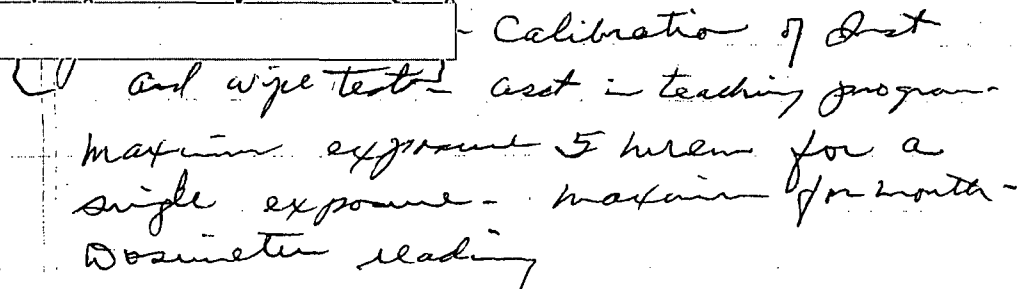 - Calibration of Inst
and wipe tests - asst in teaching program -
maximum exposure 5 mrem for a
single exposure - maximum for month -
Dosimeter reading